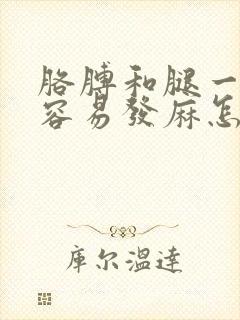 胳膊和腿一
容易發麻怎
庫尔溫達